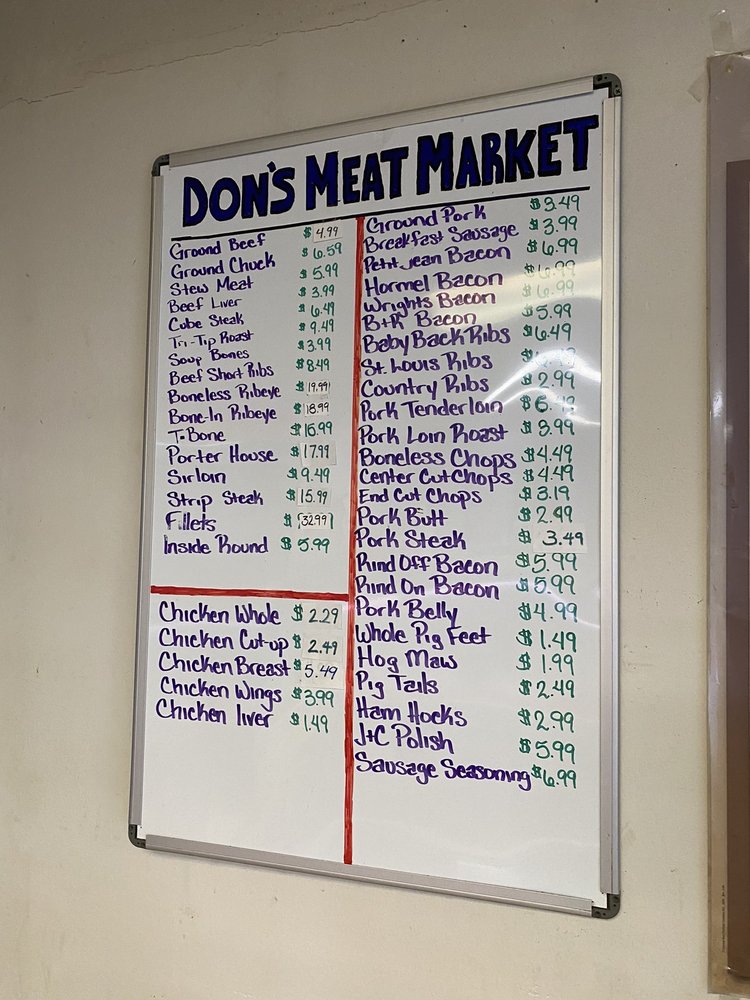 DON'S MEAT MARKET
Ground Beef $ 4.99
Ground Chuck $ 6.59
Stew Meat $ 5.99
Beef Liver $ 3.99
Cube Steak $ 6.49
Tri-Tip Roast $ 9.49
Soup Bones $ 3.99
Beef Short Ribs $ 8.49
Boneless Ribeye $ 19.99
Bone-In Ribeye $ 18.99
T-Bone $ 16.99
Porter House $ 17.99
Sirloin $ 9.49
Strip Steak $ 15.99
Fillets $ 32.99
Inside Round $ 5.99
Chicken Whole $ 2.29
Chicken Cut-up $ 2.49
Chicken Breast $ 5.49
Chicken Wings $ 3.99
Chicken liver $ 1.49
Ground Pork $ 3.49
Breakfast Sausage $ 3.99
Petit Jean Bacon $ 6.99
Hormel Bacon $ 6.99
Wrights Bacon $ 6.99
B+R Bacon $ 5.99
Baby Back Ribs $ 6.49
St. Louis Ribs
Country Ribs $ 2.99
Pork Tenderloin
Pork Loin Roast $ 3.99
Boneless Chops $ 4.49
Center Cut Chops $ 4.49
End Cut Chops $ 3.19
Pork Butt $ 2.49
Pork Steak $ 3.49
Rind Off Bacon $ 5.99
Rind On Bacon $ 5.99
Pork Belly $ 4.99
Whole Pig Feet $ 1.49
Hog Maw $ 1.99
Pig Tails $ 2.49
Ham Hocks $ 2.99
J+C Polish $ 5.99
Sausage Seasoning $ 6.99